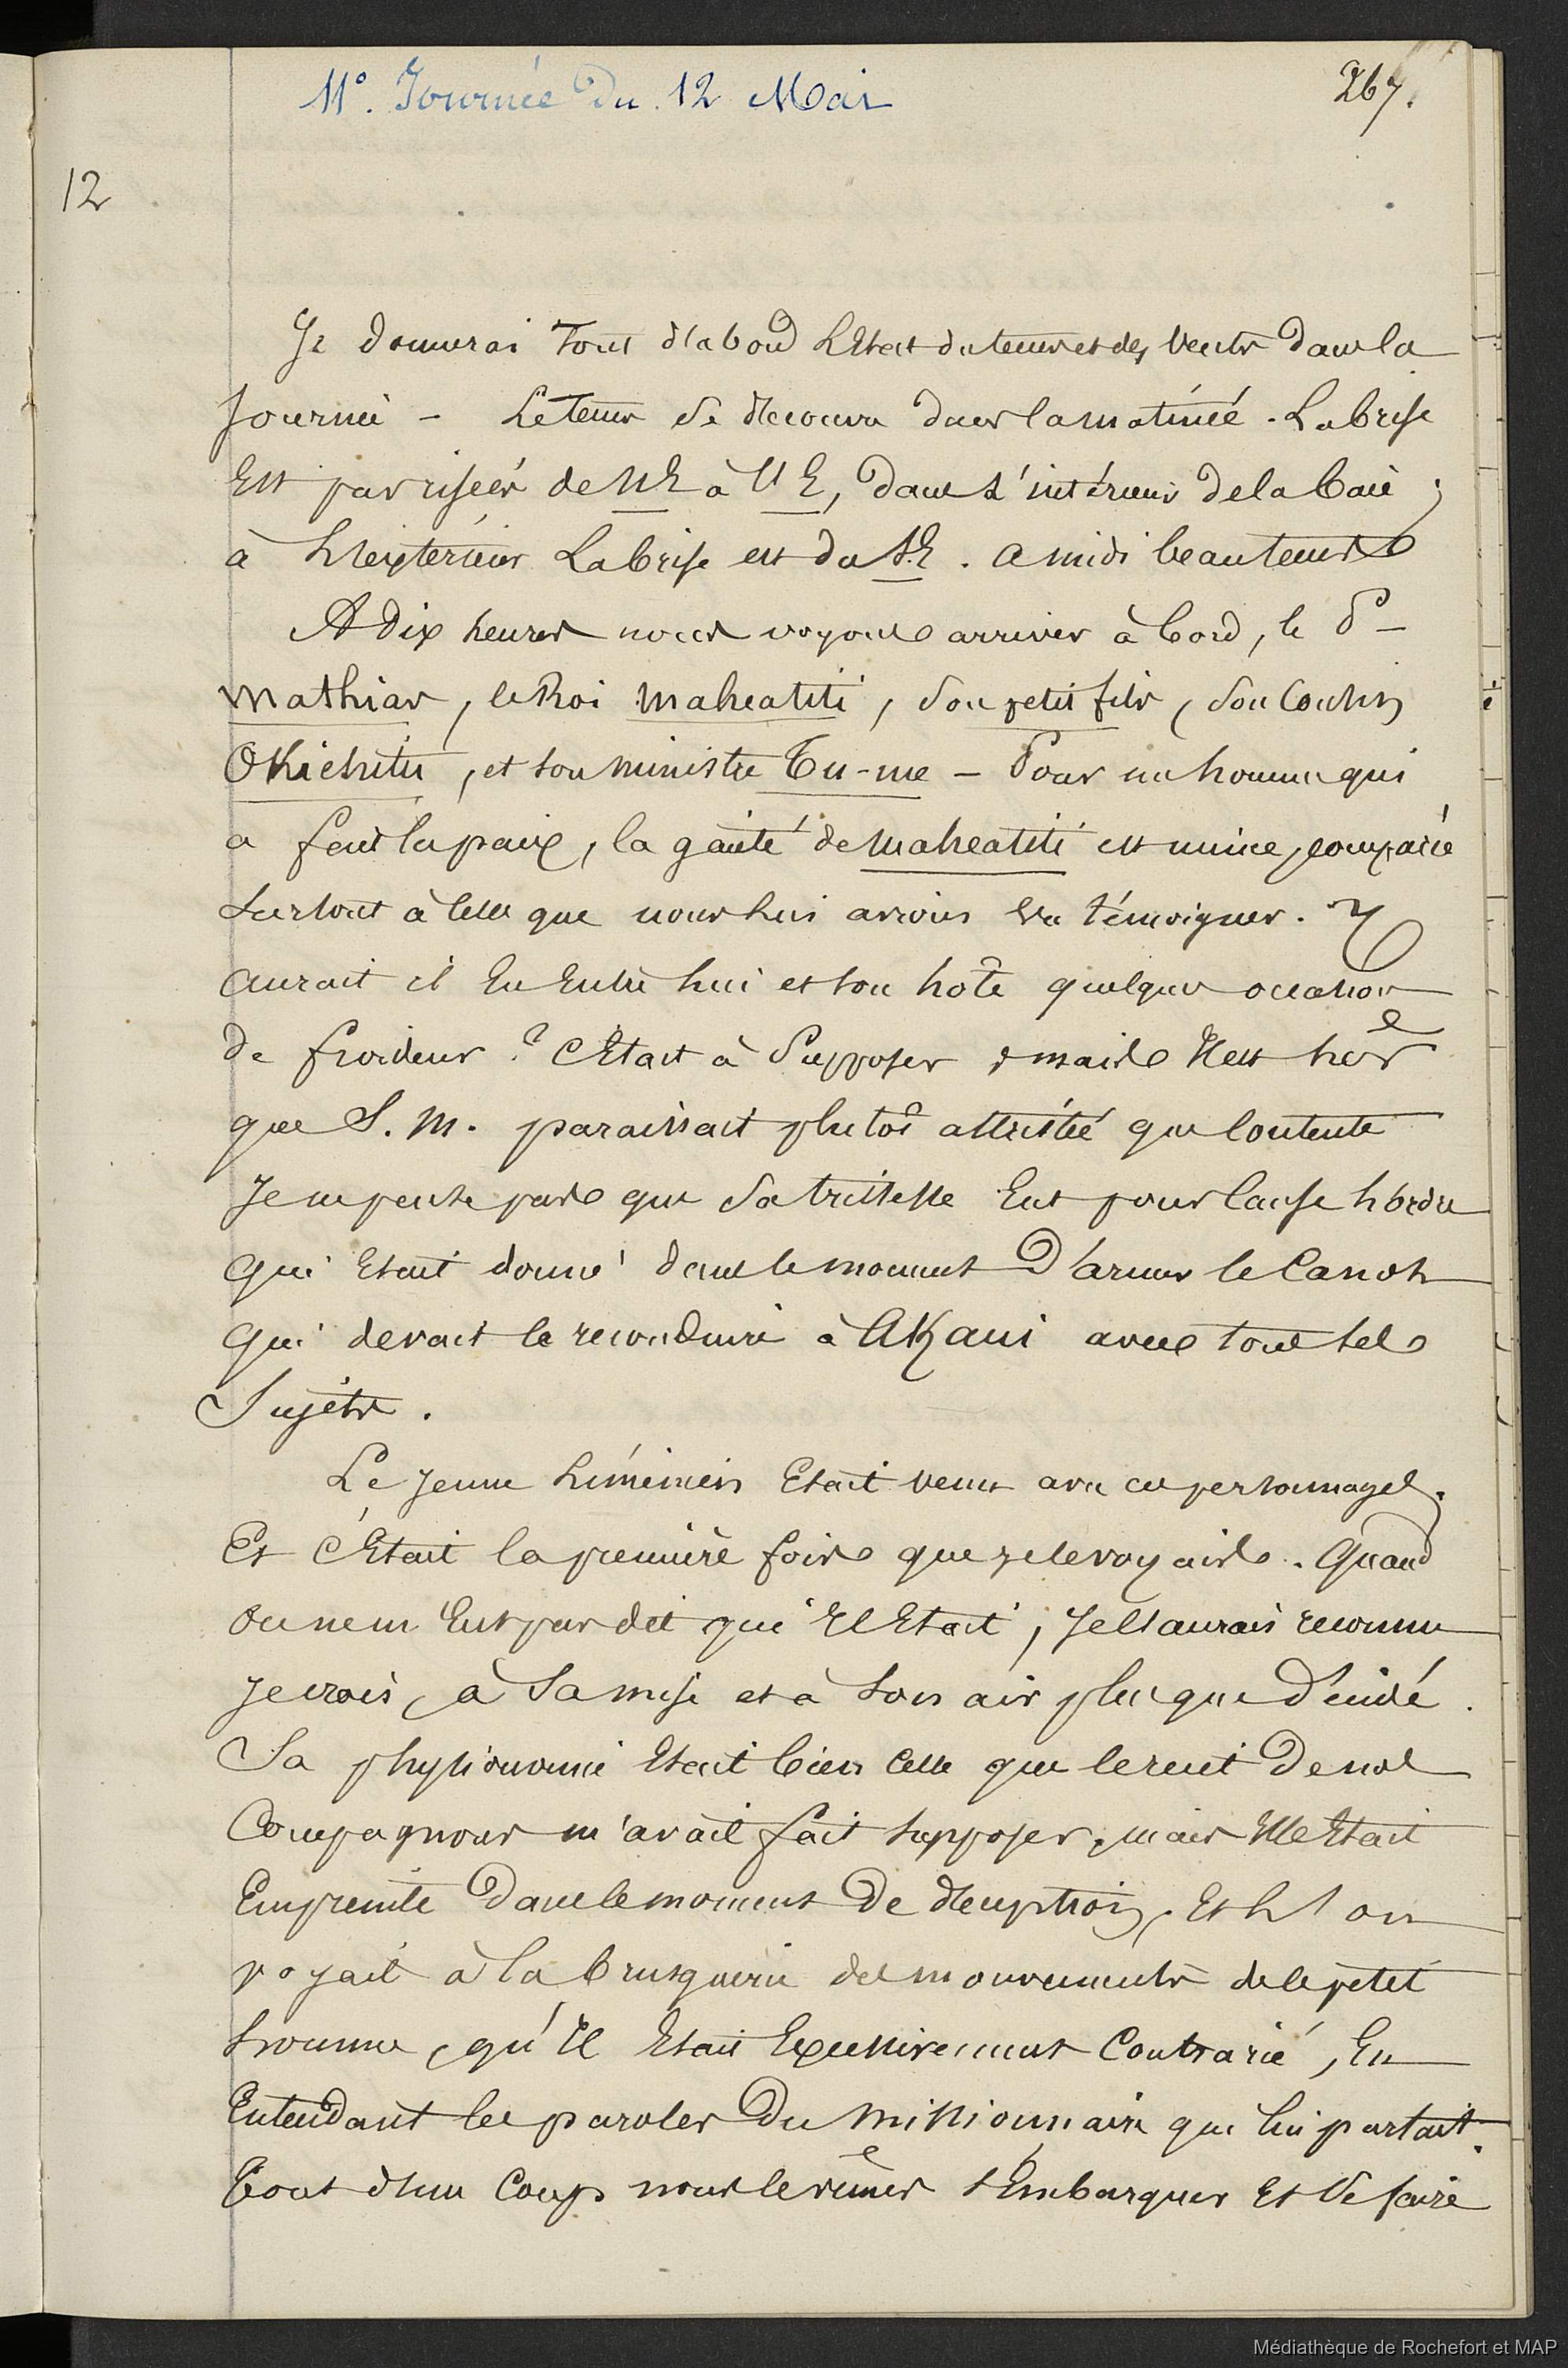 11°. Journée du 12 Mai
267.
12
Je donnerai tout d'abord L'Etat du tems et des Vents dans la
Journée - Le Tems se découvre dans la matinée. La brise
Est par risées de NE à E, dans L'intérieur de la baie ;
à L'extérieur La brise est du S.E. A midi beau tems
A dix heures nous voyons arriver à bord, le P-
Mathias, le Roi Maheatiti, son petit fils, son Cousin
OKichitu, et son ministre Tu-me - Pour un homme qui
a fait la paix, la gaité de Maheatiti est mince, comparée
Surtout à Celle que nous lui avions Vu témoigner. Y
aurait il Eu Entre lui et son hôte quelque occasion
de froideur ? C'Etait à Supposer, mais Il est sûr
que S. M. paraissait plutôt attristée que Contente
Je ne pense pas que Sa tristesse Eut pour Cause L'ordre
qui Etait donné dans le moment D'armer le Canot
qui devait le reconduire à AKani avec tous ses
Sujets.
Le Jeune Limémeis Etait venu avec ces personnages.
Et C'Etait la première fois que je le voyais. Quand
on ne m'Eut pas dit qui Il Etait, Je l'aurais reconnu
je crois, à Sa mise et à Son air plus que Décidé.
Sa physionomie Etait bien Celle que le récit De nos
Compagnons m'avait fait supposer, mais Elle Etait
Empreinte Dans le moment De déception, Et L'on
voyait à la brusquerie des mouvements de ce petit
homme, qu'Il Etait Excessivement Contrarié, En
Entendant les paroles Du Missionnaire qui lui parlait.
Tout d'un Coup nous le vîmes s'Embarquer Et Se faire
Médiathèque de Rochefort et MAP